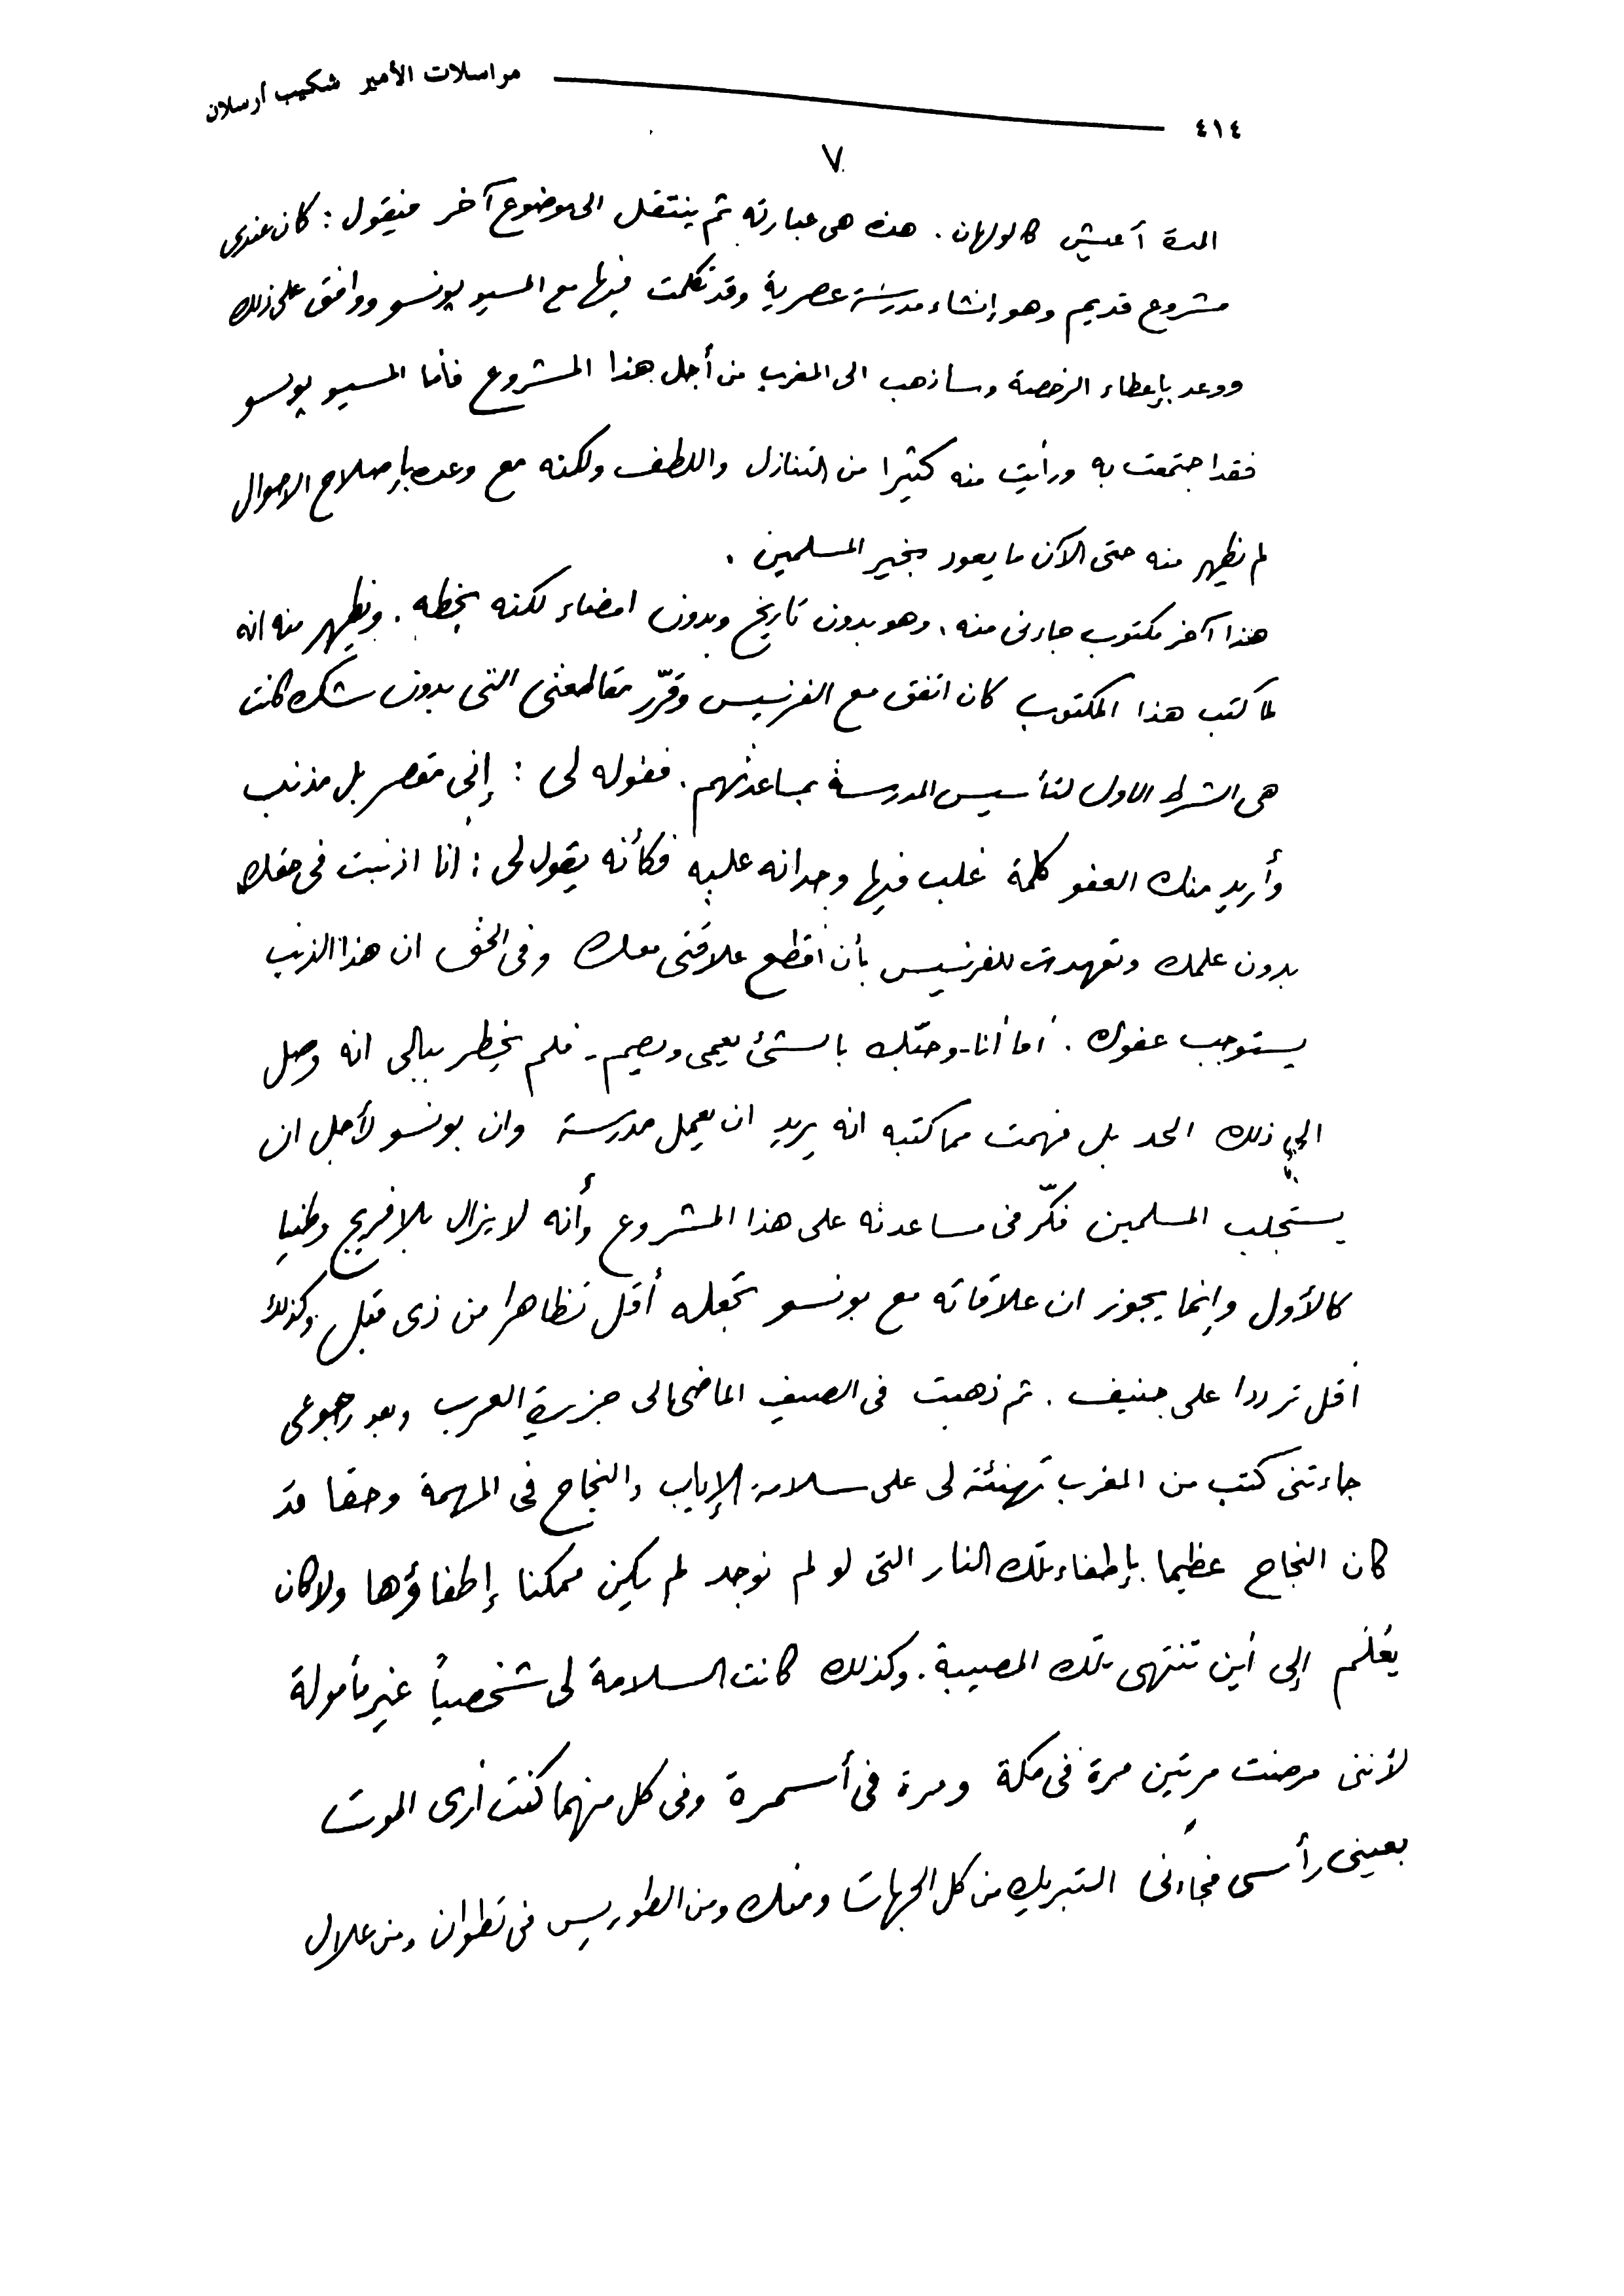 ٤١٤ مراسلات الأمير شكيب أرسلان
٧
المدة أعيش كالولهان . هذه هى عبارته ثم ينتقل الى موضوع آخر فيقول : كان عندى
مشروع قديم وهو إنشاء مدرسة عصرية وقد تكلمت فيها مع المسيو پونسو ووافق على ذلك
ووعد بإعطاء الرخصة وسأذهب الى المغرب من أجل هذا المشروع فأما المسيو پونسو
فقد اجتمعت به ورأيت منه كثيرا من التنازل واللطف ولكنه مع وعده بإصلاح الاحوال
لم يظهر منه حتى الآن ما يعود بخير المسلمين .
هذا آخر مكتوب جاءنى منه، وهو بدون تاريخ وبدون امضاء لكنه بخطه . ويظهر منه انه
لما كتب هذا المكتوب كان اتفق مع الفرنسيس وقرّر مقاطعتى التى بدون شك كانت
هى الشرط الاول لتأسيس المدرسة بمساعدتهم . فقوله لى : إنى مقصر بل مذنب
وأريد منك العفو كلمة غلب فيها وجدانه عليه فكأنه يقول لى : أنا اذنبت فى حقك
بدون علمك وتعهدت للفرنسيس بأن أقطع علاقتى معك وفى الحق ان هذا الذنب
يستوجب عفوك . أما أنا - وحبّك بالشئ يعمى ويصم - فلم يخطر ببالى انه وصل
الى ذلك الحد بل فهمت مما كتبه انه يريد ان يعمل مدرسة وان بونسو لأجل ان
يستجلب المسلمين فكّر فى مساعدته على هذا المشروع وأنه لا يزال بلافريج وطنيا
كالأول وإنما يجوز ان علاقاته مع بونسو تجعله أقل تظاهرا من ذى قبل وكذلك
أقل ترددا على جنيف . ثم ذهبت فى الصيف الماضى الى جزيرة العرب وبعد رجوعى
جاءتنى كتب من المغرب تهنئة لى على سلامة الإياب والنجاح فى المهمة وحقا قد
كان النجاح عظيما بإطفاء تلك النار التى لو لم نوجد لم يكن ممكنا إطفاؤها ولا كان
يُعلَم إلى أين تنتهى تلك المصيبة . وكذلك كانت السلامة لى شخصياً غير مأمولة
لأننى مرضت مرتين مرة فى مكة ومرة فى أسمرة وفى كل منهما كنت أرى الموت
بعينى رأسى فجاءنى التبريك من كل الجهات ومنك ومن الطوريس فى تطوان ومن علال